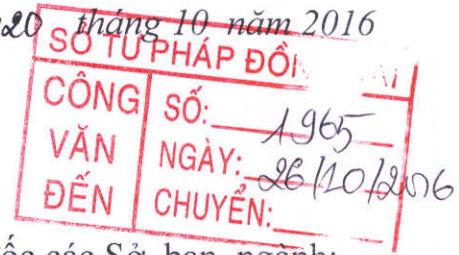 20 tháng 10 năm 2016
SỞ TƯ PHÁP ĐỒ
CÔNG VĂN ĐẾN
SỐ: 1965
NGÀY: 26/10/2016
CHUYỂN:
ốc các Sở, ban, ngành;